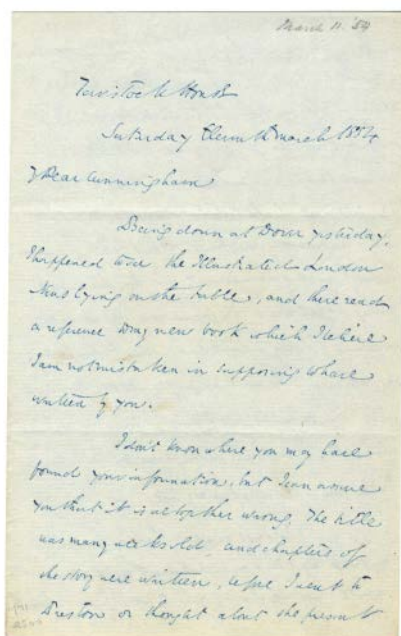 March 11. '54
Tavistock House
Saturday Eleventh March 1854
My Dear Cunningham
Being down at Dover yesterday,
I happened to see the Illustrated London
News lying on the table, and there read
a reference to my new book which I believe
I am not mistaken in supposing to have
written by you.
I don't know where you may have
found your information, but I can assure
you that it is altogether wrong. The title
was many weeks old, and chapters of
the story were written, before I went to
Preston or thought about the present